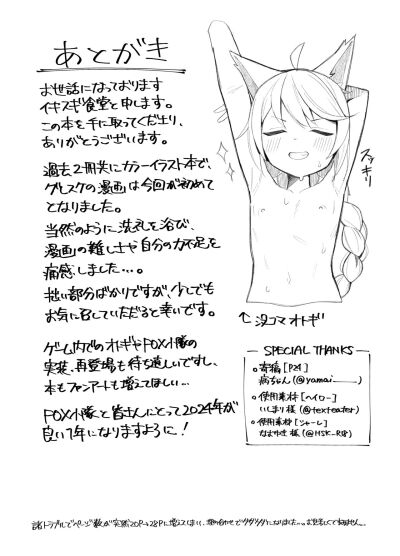 あとがき
お世話になっております
イキスギ食堂と申します。
この本を手に取ってくださり、
ありがとうございます。
過去2冊共にカラーイラスト本で、
グレスケの漫画は今回が初めて
となりました。
当然のように洗礼を浴び、
漫画の難しさや自分の力不足を
痛感しました…。
拙い部分ばかりですが、少しでも
お気に召していただると幸いです。
ゲーム内でのオトギやFOX小隊の
実装、再登場も待ち遠しいですし、
本もファンアートも増えてほしい…
FOX小隊と皆さんにとって2024年が
良い1年になりますように!
スッキリ
←没コマオトギ
SPECIAL THANKS
・寄稿[P21]
病ちゃん(@yamai____)
・使用素材[ヘイロー]
いしまり様(@texteater)
・使用素材[シャーレ]
様(@HSK_R18)
諸トラブルでページ数が突然20P→28Pに増えてしまい、